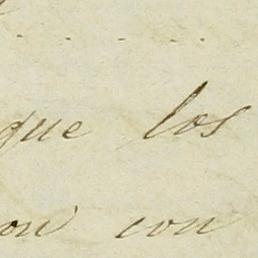 que los
on con